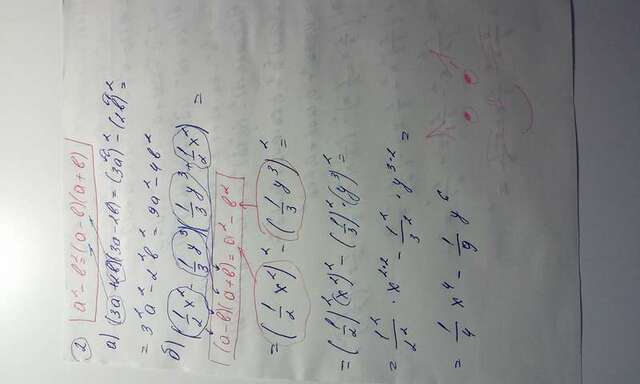 2 a² - b² = (a-b)(a+b)
а) (3a+2b)(3a-2b) = (3a)² - (2b)² =
= 3²a² - 2²b² = 9a² - 4b²
б) (1/2 x² - 1/3 y³)(1/3 y³ + 1/2 x²) =
(a-b)(a+b) = a² - b²
= (1/2 x²)² - (1/3 y³)² =
= (1/2)²·(x²)² - (1/3)²·(y³)² =
= 1²/2² · x²·² - 1²/3² · y³·² =
= 1/4 x⁴ - 1/9 y⁶